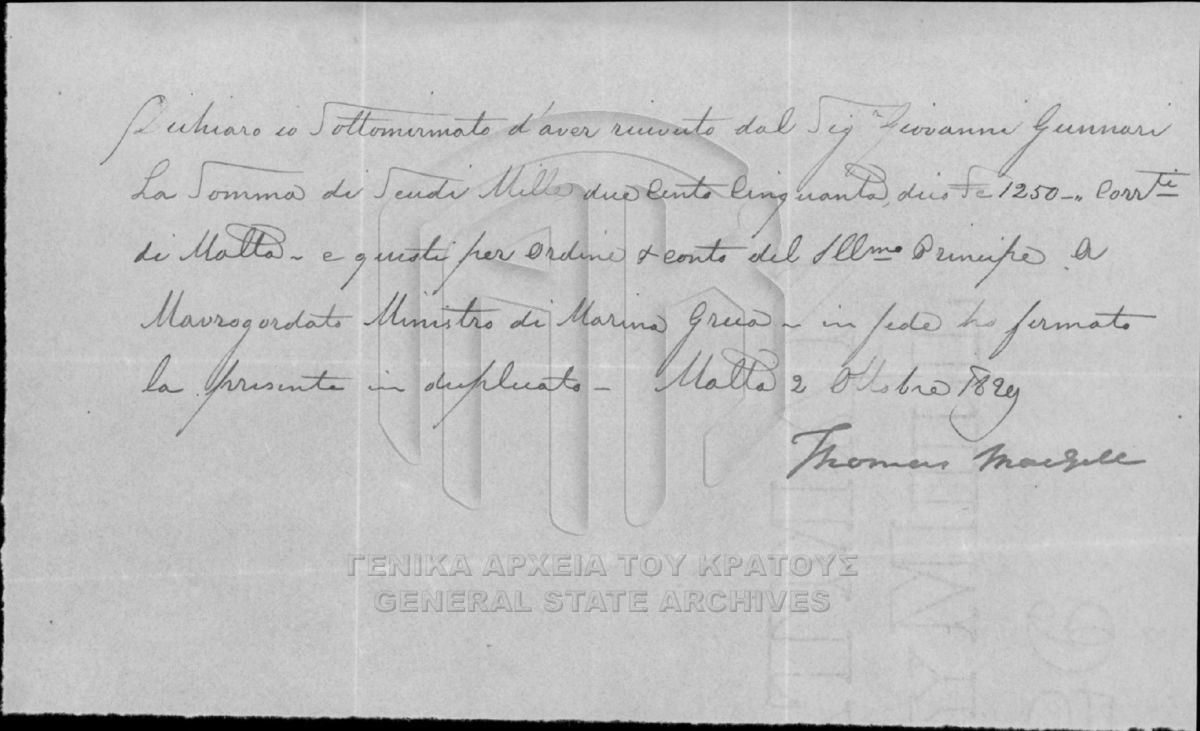 Dichiaro io Sottofirmato d'aver ricevuto dal Sig.r Giovanni Gunnari
La Somma di Scudi Mille due Cento Cinquanta, dico Sc 1250 -„ Corr.ti
di Malta - e questi per ordine & conto del Ill.mo Principe A
Mavrogordato Ministro di Marina Greca - in fede ho firmato
la presente in duplicato - Malta 2 Ottobre 1829
Thomas MacGill
ΓΕΝΙΚΑ ΑΡΧΕΙΑ ΤΟΥ ΚΡΑΤΟΥΣ
GENERAL STATE ARCHIVES